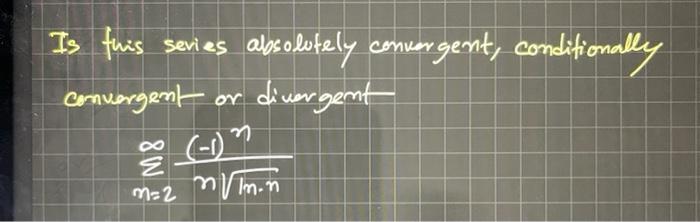 Is this series absolutely convergent, conditionally
convergent or divergent
∞
Σ (-1)^n / n√ln n
n=2